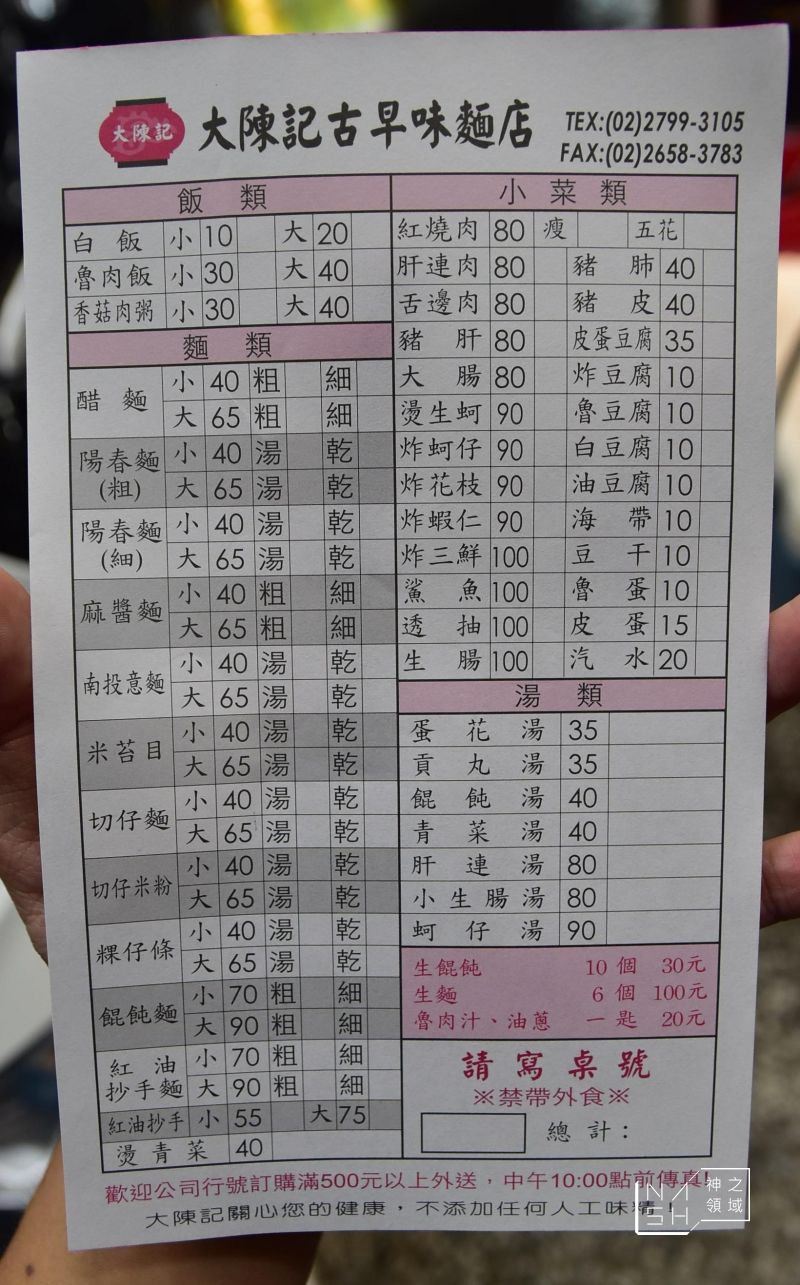 大陳記
大陳記古早味麵店
TEX:(02)2799-3105
FAX:(02)2658-3783
飯類
白飯 小 10 大 20
魯肉飯 小 30 大 40
香菇肉粥 小 30 大 40
麵類
醋麵 小 40 粗 細
大 65 粗 細
陽春麵(粗) 小 40 湯 乾
大 65 湯 乾
陽春麵(細) 小 40 湯 乾
大 65 湯 乾
麻醬麵 小 40 粗 細
大 65 粗 細
南投意麵 小 40 湯 乾
大 65 湯 乾
米苔目 小 40 湯 乾
大 65 湯 乾
切仔麵 小 40 湯 乾
大 65 湯 乾
切仔米粉 小 40 湯 乾
大 65 湯 乾
粿仔條 小 40 湯 乾
大 65 湯 乾
餛飩麵 小 70 粗 細
大 90 粗 細
紅油抄手麵 小 70 粗 細
大 90 粗 細
紅油抄手 小 55 大 75
燙青菜 40
小菜類
紅燒肉 80 瘦 五花
肝連肉 80 豬肺 40
舌邊肉 80 豬皮 40
豬肝 80 皮蛋豆腐 35
大腸 80 炸豆腐 10
燙生蚵 90 魯豆腐 10
炸蚵仔 90 白豆腐 10
炸花枝 90 油豆腐 10
炸蝦仁 90 海帶 10
炸三鮮 100 豆干 10
鯊魚 100 魯蛋 10
透抽 100 皮蛋 15
生腸 100 汽水 20
湯類
蛋花湯 35
貢丸湯 35
餛飩湯 40
青菜湯 40
肝連湯 80
小生腸湯 80
蚵仔湯 90
生餛飩 10個 30元
生麵 6個 100元
魯肉汁、油蔥 一匙 20元
請寫桌號
※禁帶外食※
總計：
歡迎公司行號訂購滿500元以上外送，中午10:00點前傳真!
大陳記關心您的健康，不添加任何人工味精！
神之領域